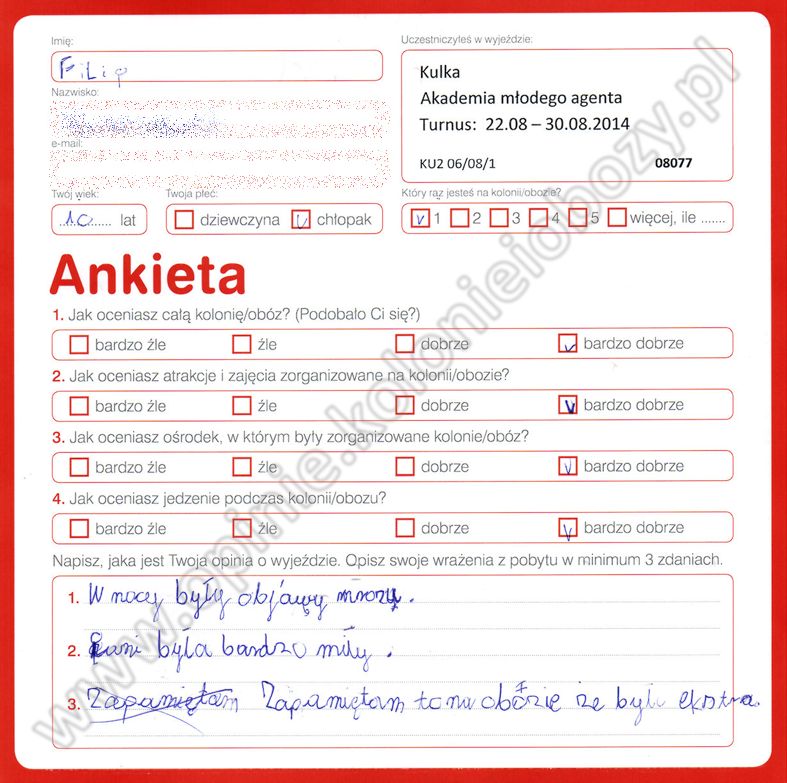 Imię:
Filip
Uczestniczyłeś w wyjeździe:
Kulka
Akademia młodego agenta
Turnus: 22.08 – 30.08.2014
KU2 06/08/1 08077
Nazwisko:
e-mail:
Twój wiek: Twoja płeć: Który raz jesteś na kolonii/obozie?
10 lat dziewczyna chłopak 1 2 3 4 5 więcej, ile .......
Ankieta
1. Jak oceniasz całą kolonię/obóz? (Podobało Ci się?)
bardzo źle źle dobrze bardzo dobrze
2. Jak oceniasz atrakcje i zajęcia zorganizowane na kolonii/obozie?
bardzo źle źle dobrze bardzo dobrze
3. Jak oceniasz ośrodek, w którym były zorganizowane kolonie/obóz?
bardzo źle źle dobrze bardzo dobrze
4. Jak oceniasz jedzenie podczas kolonii/obozu?
bardzo źle źle dobrze bardzo dobrze
Napisz, jaka jest Twoja opinia o wyjeździe. Opisz swoje wrażenia z pobytu w minimum 3 zdaniach.
1. W nocy były objawy mrozu.
2. Pani była bardzo miły.
3. Zapamiętam Zapamiętam to na obozie że było ekstra.
www.opinie.kolonieiobozy.pl